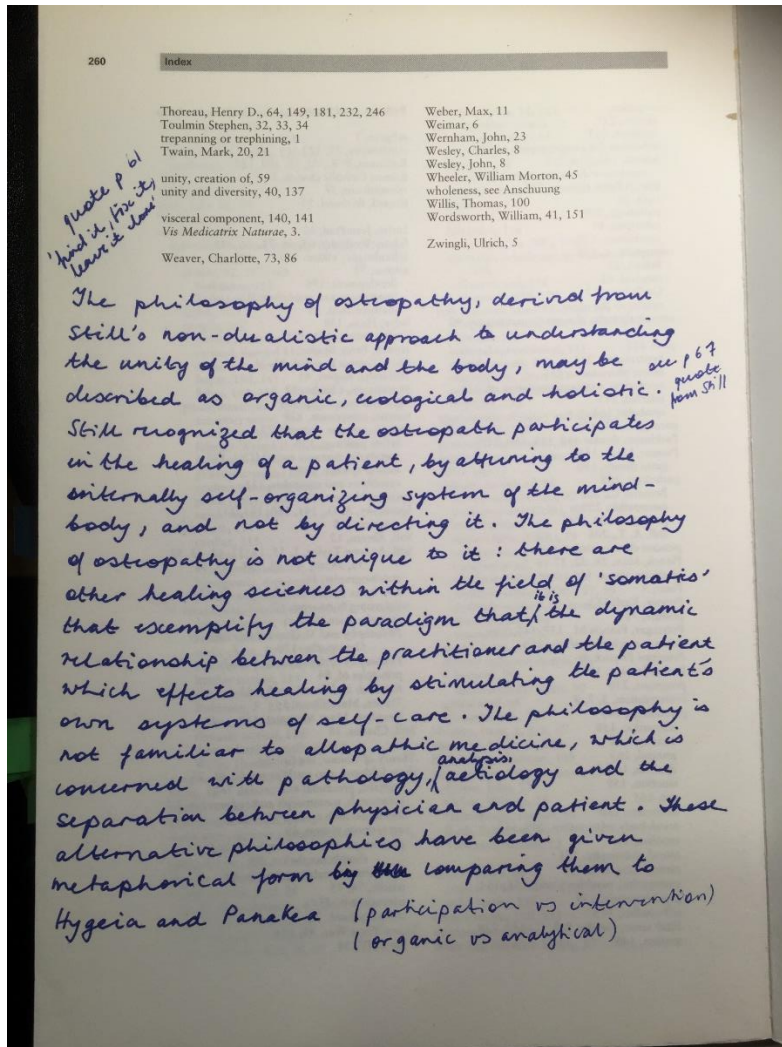 260
Index
Thoreau, Henry D., 64, 149, 181, 232, 246
Toulmin Stephen, 32, 33, 34
trepanning or trephining, 1
Twain, Mark, 20, 21
unity, creation of, 59
unity and diversity, 40, 137
visceral component, 140, 141
Vis Medicatrix Naturae, 3.
Weaver, Charlotte, 73, 86
Weber, Max, 11
Weimar, 6
Wernham, John, 23
Wesley, Charles, 8
Wesley, John, 8
Wheeler, William Morton, 45
wholeness, see Anschuung
Willis, Thomas, 100
Wordsworth, William, 41, 151
Zwingli, Ulrich, 5
quote p 61
'find it, fix it,
leave it alone'
The philosophy of osteopathy, derived from
Still's non-dualistic approach to understanding
the unity of the mind and the body, may be
described as organic, ecological and holistic.
see p 67
quote
from Still
Still recognized that the osteopath participates
in the healing of a patient, by attuning to the
internally self-organizing system of the mind-
body, and not by directing it. The philosophy
of osteopathy is not unique to it : there are
other healing sciences within the field of 'somatics'
that exemplify the paradigm that it is the dynamic
relationship between the practitioner and the patient
which effects healing by stimulating the patient's
own systems of self-care. The philosophy is
not familiar to allopathic medicine, which is
concerned with pathology, analysis, aetiology and the
separation between physician and patient. These
alternative philosophies have been given
metaphorical form by comparing them to
Hygeia and Panakea (participation vs intervention)
(organic vs analytical)